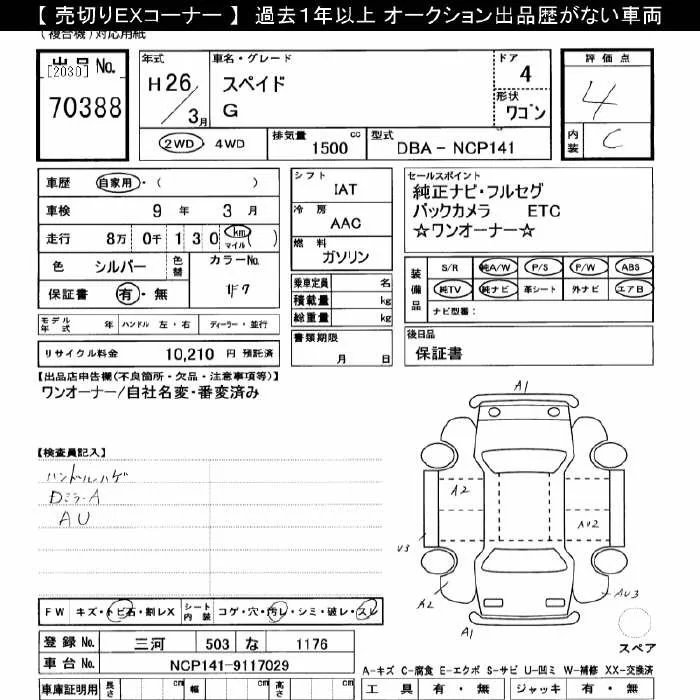 【 売切りEXコーナー 】 過去１年以上 オークション出品歴がない車両
（複合機）対応用紙
出品 No.
[2030]
70388
年式
H 26
3月
車名・グレード
スペイド
G
ドア
4
形状
ワゴン
評価点
4
内装
C
2WD・4WD
排気量
1500 cc
型式
DBA - NCP141
車歴 自家用・( )
車検 9 年 3 月
走行 8万 0千 1 3 0 km マイル ( )
色 シルバー
色替
カラーNo.
1F7
保証書 有・無
シフト
IAT
冷房
AAC
燃料
ガソリン
乗車定員 名
積載量 kg
総重量 kg
書類期限
月 日
セールスポイント
純正ナビ・フルセグ
バックカメラ ETC
☆ワンオーナー☆
装備品
S/R 純A/W P/S P/W ABS
純TV 純ナビ 革シート 外ナビ エアB
ナビ型番:
モデル年式 年 ハンドル 左・右 ディーラー・並行
リサイクル料金 10,210 円 預託済
後日品
保証書
【出品店申告欄(不良箇所・欠品・注意事項等)】
ワンオーナー/自社名変・番変済み
【検査員記入】
ハンドルハゲ
DミラーA
AU
A1
A2
AU2
U3
A2
AU3
A1
スペア
FW キズ・トビ石・割レX
シート内装 コゲ・穴・汚レ・シミ・破レ・スレ
登録 No. 三河 503 な 1176
車台 No. NCP141-9117029
車庫証明用 長さ cm 幅 cm 高さ cm
A-キズ C-腐食 E-エクボ S-サビ U-凹ミ W-補修 XX-交換済
工具 有・無 ジャッキ 有・無